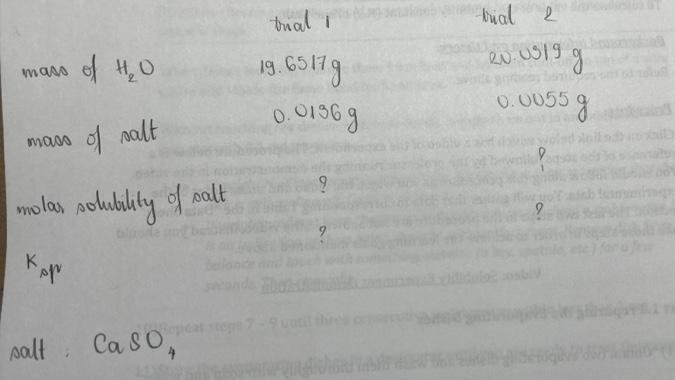 trial 1 trial 2
mass of H₂O 19.6517g 20.0519 g
mass of salt 0.0196g 0.0055 g
molar solubility of salt ? ?
Ksp ? ?
salt : CaSO₄